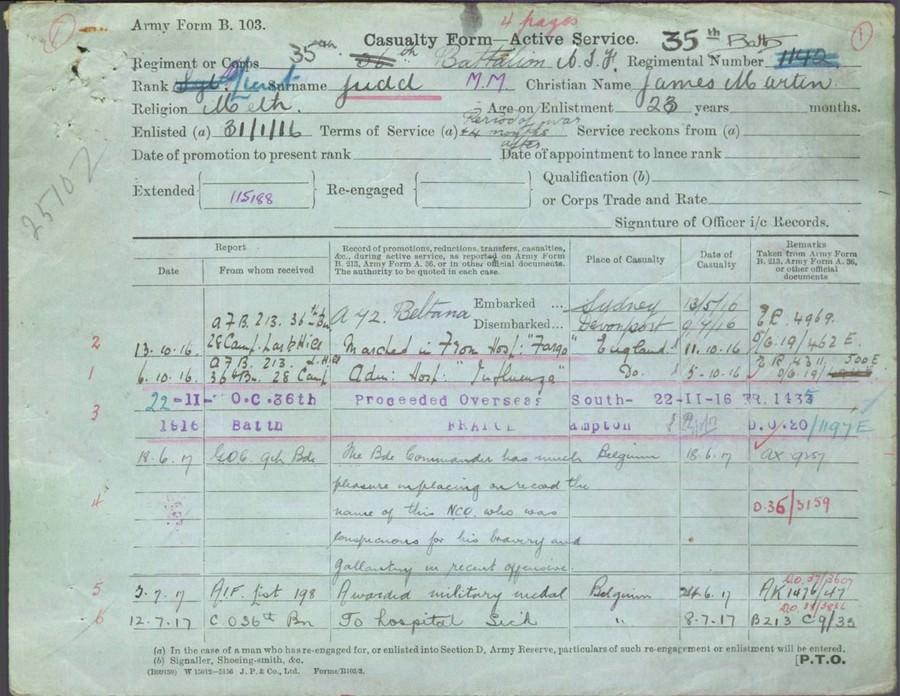 Army Form B. 103.
4 pages
Casualty Form—Active Service.
35th Battn
Regiment or Corps 35th 36th Battalion A.I.F. Regimental Number 1142
Rank Sgt Lieut Surname Judd M.M Christian Name James Martin
Religion Meth. Age on Enlistment 23 years months.
Enlisted (a) 31/1/16 Terms of Service (a) Period of war +4 months after Service reckons from (a)
Date of promotion to present rank Date of appointment to lance rank
Extended Re-engaged Qualification (b)
115188 or Corps Trade and Rate
25102
Signature of Officer i/c Records.
Report
Date From whom received
Record of promotions, reductions, transfers, casualties, &c., during active service, as reported on Army Form B. 213, Army Form A. 36, or in other official documents. The authority to be quoted in each case.
Place of Casualty
Date of Casualty
Remarks
Taken from Army Form B. 213, Army Form A. 36, or other official documents
Beltana Embarked ... Sydney 13/5/16
A.F.B. 213. 36th Bn Disembarked ... Devonport 9/7/16 4969.
2 13.10.16. 28 Camp. Marched in From Hosp: "Fargo" England 11.10.16 D/6.19/462 E.
A.F.B. 213.
1 6.10.16. 36th Bn. 28 Camp Adm: Hosp: "Influenza" Do. 5-10-16 D/6.19/ 500 E
3 22-11- O.C.36th Proceeded Overseas South- 22-11-16
1916 Battn FRANCE ampton D.O.20/1197E
18.6.17 G.O.C. 9th Bde The Bde Commander has much Belgium 18.6.17
pleasure in placing on record the
4 name of this NCO. who was D.36/3159
conspicuous for his bravery and
gallantry in recent offensive.
5 3.7.17 A.I.F. List 198 Awarded military medal Belgium 24.6.17 AK1476/47
6 12.7.17 C O 36th Bn To hospital Sick " 8.7.17 B213 C9/35
(a) In the case of a man who has re-engaged for, or enlisted into Section D, Army Reserve, particulars of such re-engagement or enlistment will be entered.
(b) Signaller, Shoeing-smith, &c.
J. P. & Co., Ltd. Forms/B103/2.
[P.T.O.